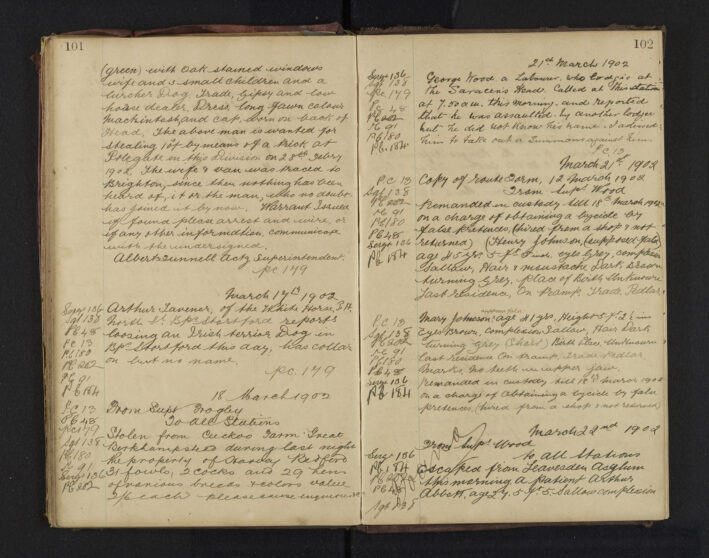 101
(green) with oak stained windows
wife and 3 small children and a
lurcher Dog. Trade, Gipsy and low
horse dealer, Dress long fawn colour
Mackintosh and cap worn on back of
Head. The above man is wanted for
stealing 10£ by means of a trick at
Polegate in this Division on 28th Febry
1902. The wife & van was traced to
Brighton, since then nothing has been
heard of it or the man, who no doubt
has joined it by now. Warrant Issued
if found please arrest and wire, or
if any other information communicate
with the undersigned.
Albert Funnell Actg Superintendent.
PC 179
March 17th 1902
Sergt 136
Sgt 138
PC 48
PC 13
PC 180
PC 202
PC 91
PC 184
Arthur Tavener, of the White Horse, P.H.
North St Bps Stortford reports
loosing an Irish terrior Dog in
Bps Stortford this day, has collar
on but no name.
PC 179
18 March 1902
PC 13
PC 48
PC 179
Sgt 138
PC 180
PC 91
Sergt 136
PC 202
From Supt Frogley
To all Stations
Stolen from Cuckoo Farm Great
Berkhamstead during last night
the property of Bedford
31 fowls, 2 cocks and 29 hens
of various breeds & colors value
2/- each please cause enquiries
102
21st March 1902
Sergt 136
Sgt 138
PC 179
PC 48
PC 202
PC 91
PC 180
PC 184
George Wood, a Labourer, who lodges at
the Saracens Head Called at this station
at 7.00 a.m. this morning and reported
that he was assaulted by another lodger
but he did not know his name. I advised
him to take out a Summons against him.
P.C. 13
March 21st 1902
PC 13
Sgt 138
PC 202
PC 91
PC 180
PC 48
Sergt 136
PC 184
Copy of route Form, 12 March 1902
From Supt Wood
Remanded in custody till 18th March 1902
on a charge of obtaining a bycicle by
false pretences, (hired from a shop & not
returned) (Henry Johnson, (supposed false)
age 45 yrs 5 ft eyes Grey, complexion
Sallow, Hair & moustache Dark Brown
turning Grey, place of Birth Unknown
Last residence, On tramp, Trade, Pedlar.
PC 13
Sgt 138
PC 202
PC 91
PC 180
PC 48
Sergt 136
PC 184
Mary Johnson, age 41 yrs, Height 5 ft 2½ in
Eye Brown, complexion Sallow, Hair Dark
turning Grey (Short) Birth Place, Unknown
last residence On tramp, Trade Pedlar
Marks, No teeth in upper jaw.
Remanded in custody till 18th March 1902
on a charge of obtaining a bycicle by false
pretences, (hired from a shop & not returned)
March 22nd 1902
Sergt 136
PC 184
PC 202
PC 48
Sgt 138
From Supt Wood
to all Stations
Escaped from Leavesden Asylum
this morning a patient Arthur
Abbott, age 27, 5 ft 5 Sallow complexion